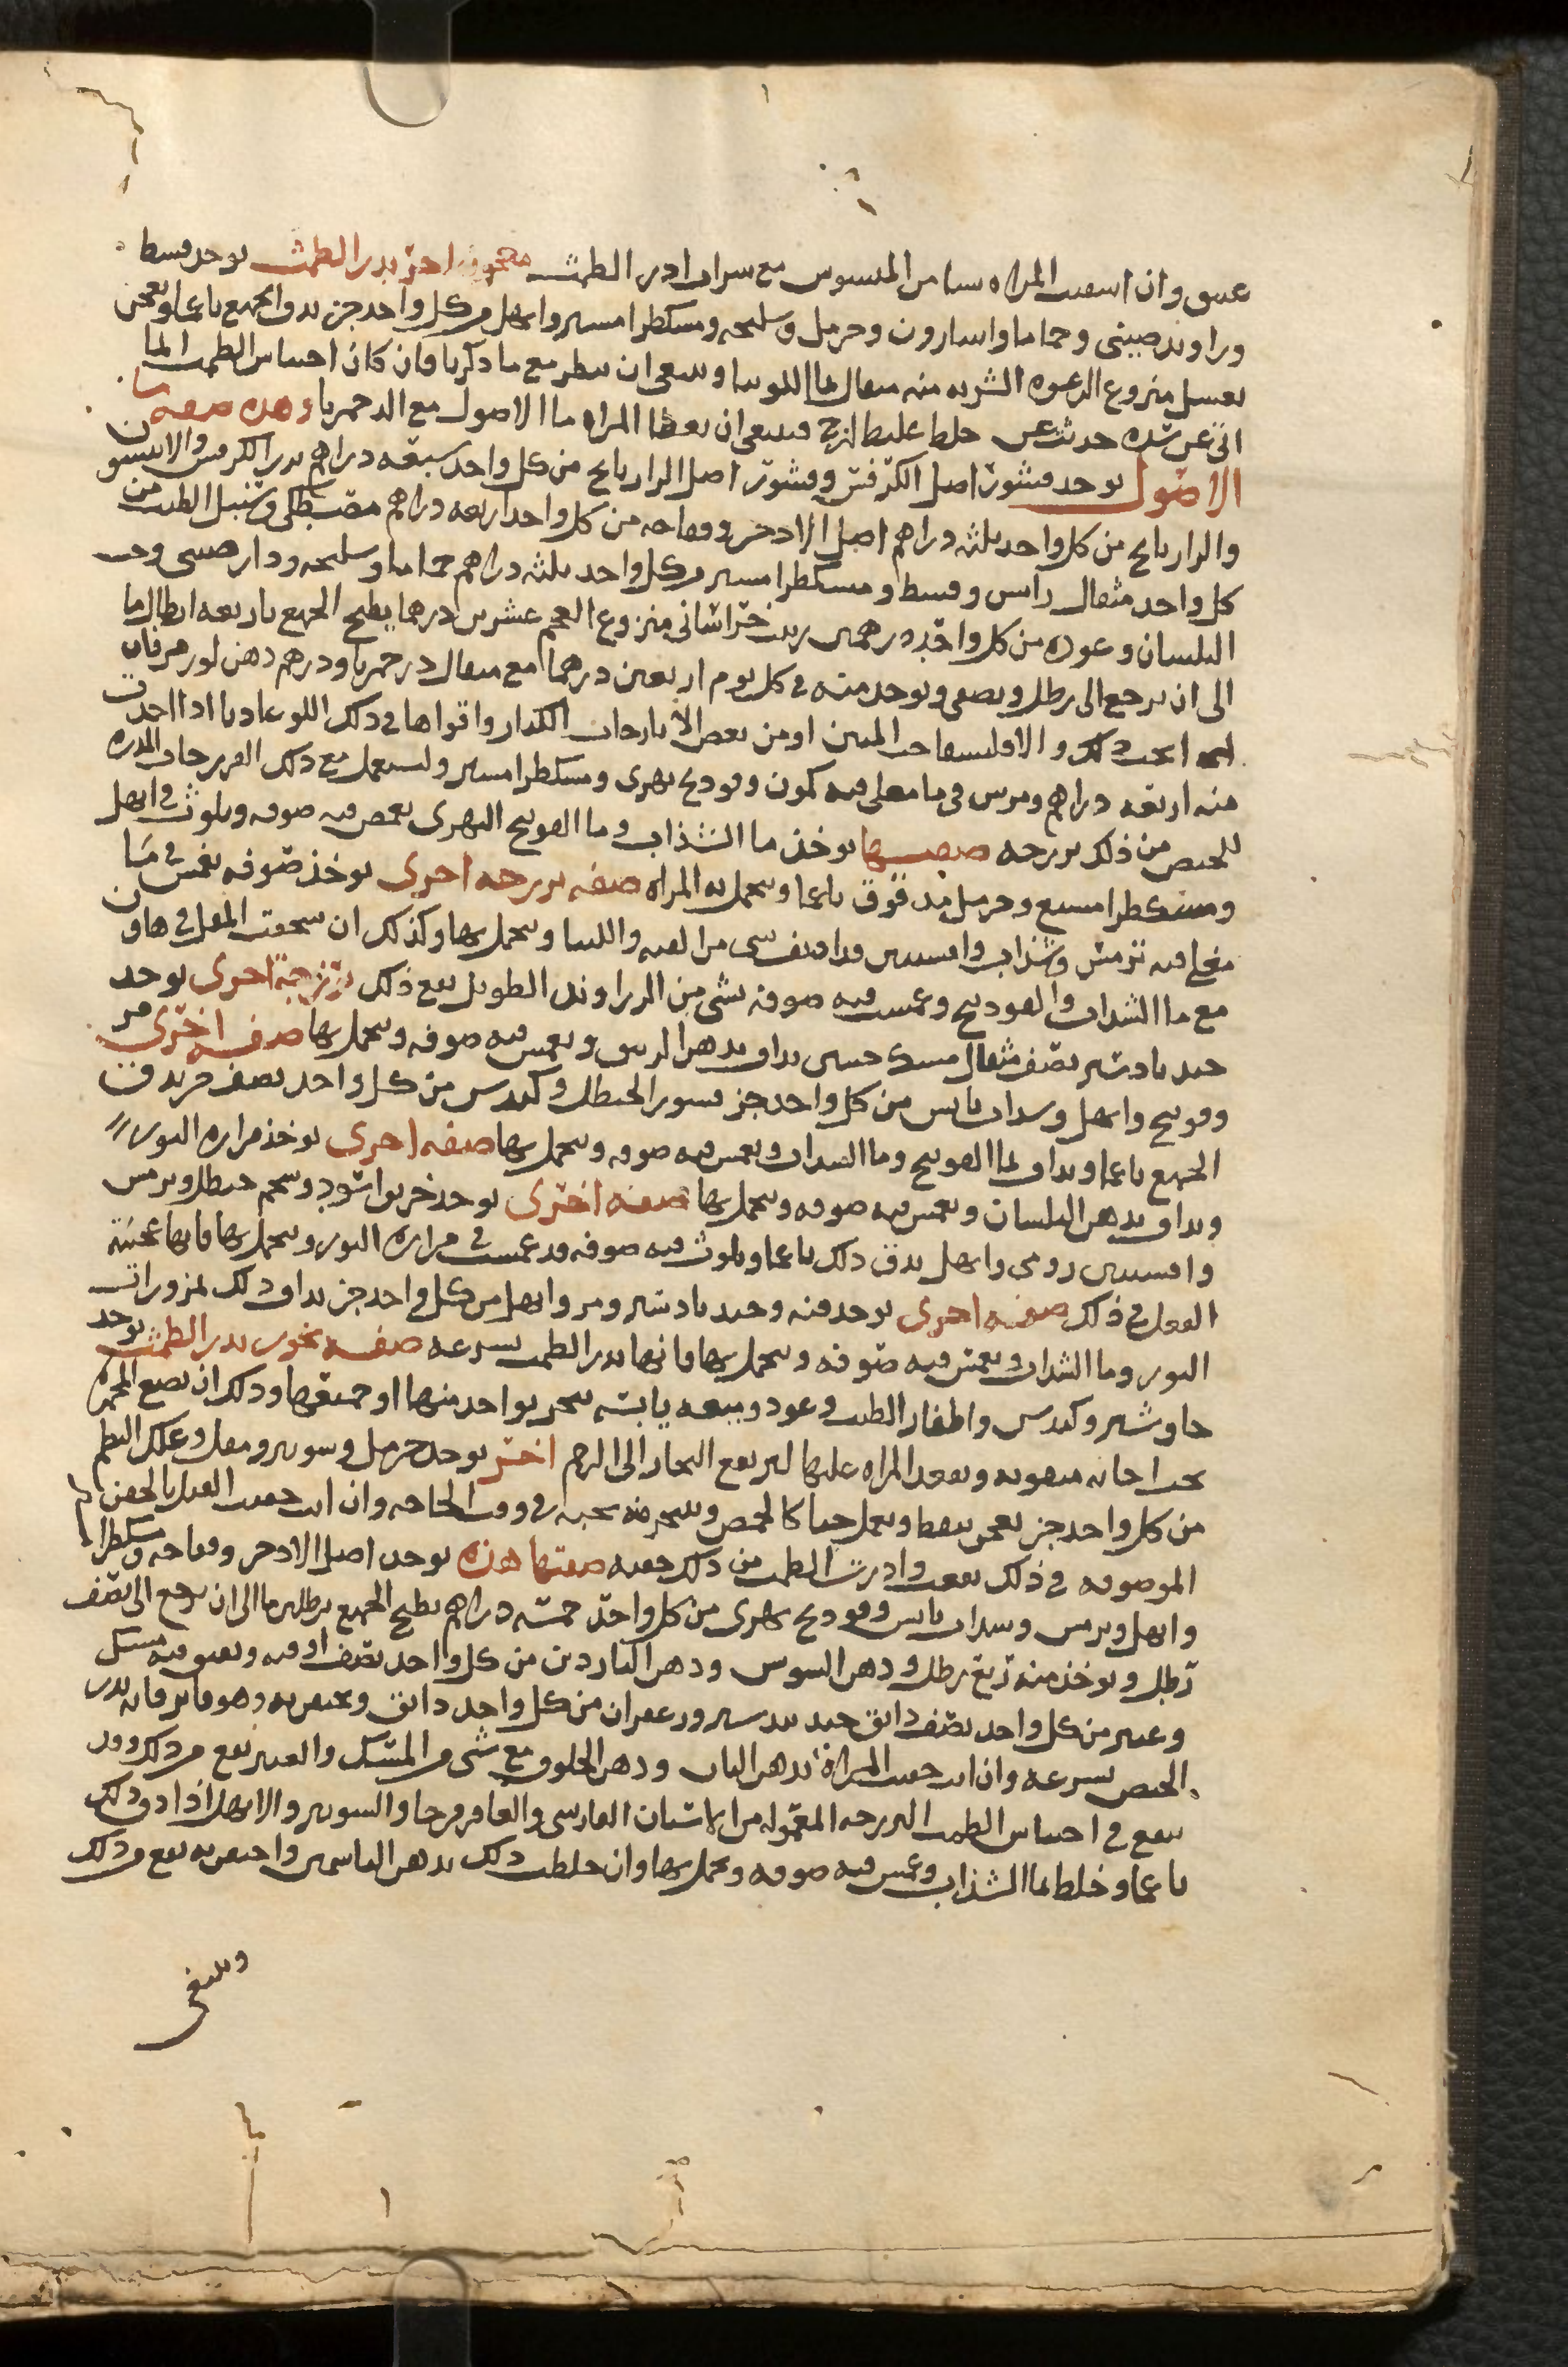 عتيق وان اسقيت المراه شيا من المسوس مع شراب ادر الطمث معجون اخر يدر الطمث يوخذ قسط
وراوند صيني وحماما واسارون وحرمل وسليخه ومشكطرامشير وابهل من كل واحد جز يدق الجميع ناعما ويعجن
بعسل منزوع الرغوه الشربه منه مثقال بما اللوبيا وينبغي ان ينظر مع ما ذكرنا فان كان احتباس الطمث انما
اتى عن شده حدثت عن خلط غليظ لزج فينبغي ان يعطا المراه ما الاصول مع الدحمرثا وهذه صفه ما
الاصول يوخذ قشور اصل الكرفس وقشور اصل الرازيانج من كل واحد سبعه دراهم بزر الكرفس والانيسون
والرازيانج من كل واحد ثلثه دراهم اصل الاذخر وفقاحه من كل واحد اربعه دراهم مصطكى وسنبل الطيب من
كل واحد مثقال راسن وقسط ومشكطرامشير من كل واحد ثلثه دراهم حماما وسليخه ودارصيني وحب
البلسان وعوده من كل واحد درهمين زبيب خراساني منزوع العجم عشرين درهما يطبخ الجميع باربعه ارطال ما
الى ان يرجع الى رطل ويصفى ويوخذ منه في كل يوم اربعين درهما مع مثقال دحمرثا ودرهم دهن لوز مر فان
انجب ذلك والا فليسقا حب المنتن او من بعض الايارجات الكبار واقواها في ذلك اللوغاديا اذا اخذت
منه اربعه دراهم ومرس في ما مغلى فيه كمون وفودنج نهرى ومشكطرامشير وليستعمل مع ذلك الفرزجات المدره
للحيض من ذلك فرزجه صفتها يوخذ ما الشذاب وما الفوتنج النهرى يغمس فيه صوفه ويلوث في ابهل
ومشكطرامشيع وحرمل مدقوق ناعما وتحمل به المراه صفه فرزجه اخرى يوخذ صوفه تغمس في ما
مغلى فيه ترمس وشذاب وافسنتين وتحمل بها وكذلك ان سحقت المقل في هاون
مع ما الشذاب والفودنج وغمست فيه صوفه بشى من الزراوند الطويل نفع ذلك فرزجه اخرى يوخذ
جندبادستر نصف مثقال مسك حبتين يداف بدهن الزنبق ويغمس فيه صوفه وتحمل بها صفه اخرى مر
وفوتنج وابهل وسداب يابس من كل واحد جز قشور الحنظل وكندس من كل واحد نصف جز يدق
الجميع ناعما ويداف بما الفوتنج وما السداب ويغمس فيه صوفه وتحمل بها صفه اخرى يوخذ مراره الثور
ويداف بدهن البلسان ويغمس فيه صوفه وتحمل بها صفه اخرى يوخذ خربق اسود وشحم حنظل وترمس
وافسنتين رومي وابهل يدق ذلك ناعما ويلوث فيه صوفه قد غمست في مراره الثور وتحمل بها فانها عجيبه
الفعل في ذلك صفه اخرى يوخذ قنه وجندبادستر ومر وابهل من كل واحد جز يداف ذلك
الثور وما الشذاب ويغمس فيه صوفه وتحمل بها فانها تدر الطمث بسرعه صفه بخور يدر الطمث يوخذ
جاوشير وكندس واظفار الطيب وعود وميعه يابسه يبخر بواحد منها او جميعها وذلك ان تضع المجمره
تحت اجانه مثقوبه وتقعد المراه عليها ليرتفع البخار الى الرحم اخر يوخذ حرمل وشونيز ومقل وعلك البطم
من كل واحد جز يعجن بنفط ويعمل حبا كالحمص ويتبخر منه بحبه في وقت الحاجه وان انت حقنت القبل بالحقن
الموصوفه في ذلك نفعت وادرت الطمث من ذلك حقنه صفتها هذه يوخذ اصل الاذخر وفقاحه ومشكطرا
وابهل وترمس وسداب يابس وفودنج نهرى من كل واحد خمسه دراهم يطبخ الجميع برطلين ما الى ان يرجع الى نصف
رطل ويوخذ منه ربع رطل ودهن السوسن ودهن الناردين من كل واحد نصف اوقيه ويفتق فيه مسك
وعنبر من كل واحد نصف دانق جندبيدستر وزعفران من كل واحد دانق ويحتقن به وهو فاتر فانه يدر
الحيض بسرعه وان انت حقنت المراه بدهن البان ودهن الخلوق مع شى من المسك والعنبر نفع من ذلك وقد
ينفع في احتباس الطمث الفرزجه المعموله من الاشنان الفارسى والعاقرقرحا والشونيز والابهل اذا دق ذلك
ناعما وخلط بما الشذاب وغمس فيه صوفه وتحمل بها وان خلطت ذلك بدهن الياسمين واحتقن به نفع من ذلك
وينبغي